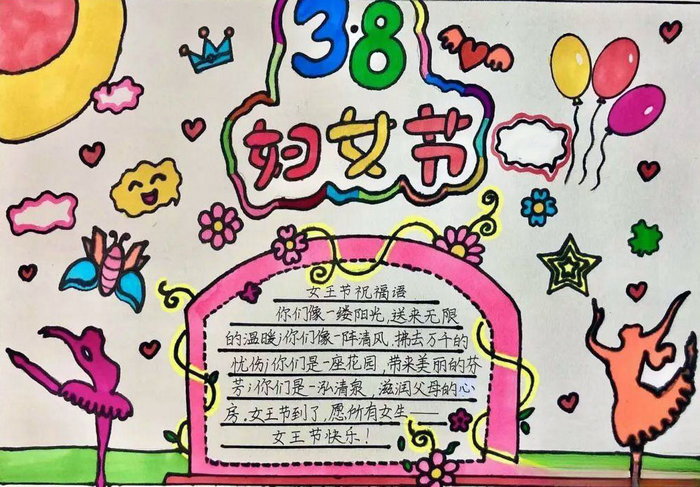 3.8
妇女节
女王节祝福语
你们像一缕阳光,送来无限
的温暖;你们像一阵清风,拂去万千的
忧伤;你们是一座花园,带来美丽的芬
芳;你们是一泓清泉,滋润父母的心
房,女王节到了,愿所有女生——
女王节快乐!